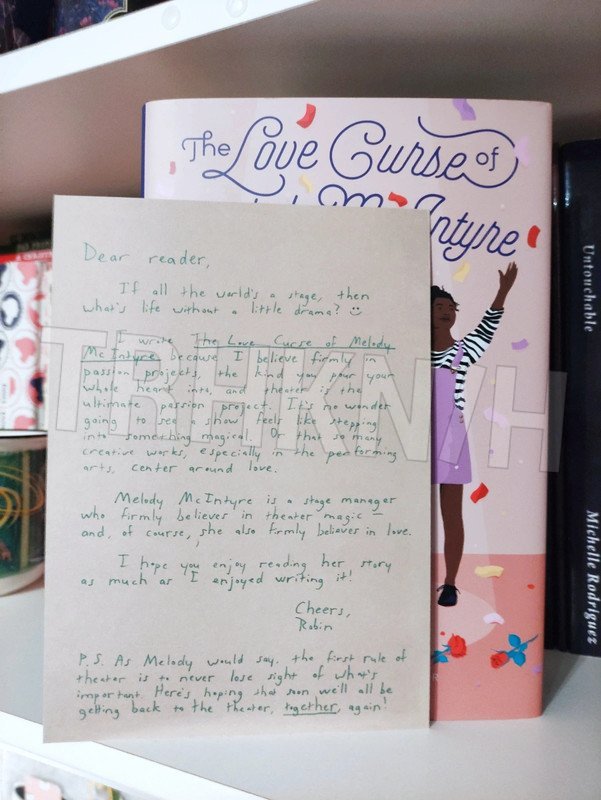 The Love Curse of
McIntyre
Dear reader,
If all the world's a stage, then
what's life without a little drama? ☺
I wrote The Love Curse of Melody
McIntyre because I believe firmly in
passion projects, the kind you pour your
whole heart into, and theater is the
ultimate passion project. It's no wonder
going to see a show feels like stepping
into something magical. Or that so many
creative works, especially in the performing
arts, center around love.
Melody McIntyre is a stage manager
who firmly believes in theater magic —
and, of course, she also firmly believes in love.
I hope you enjoy reading her story
as much as I enjoyed writing it!
Cheers,
Robin
P.S. As Melody would say, the first rule of
theater is to never lose sight of what's
important. Here's hoping that soon we'll all be
getting back to the theater, together, again!
Untouchable
Michelle Rodriguez